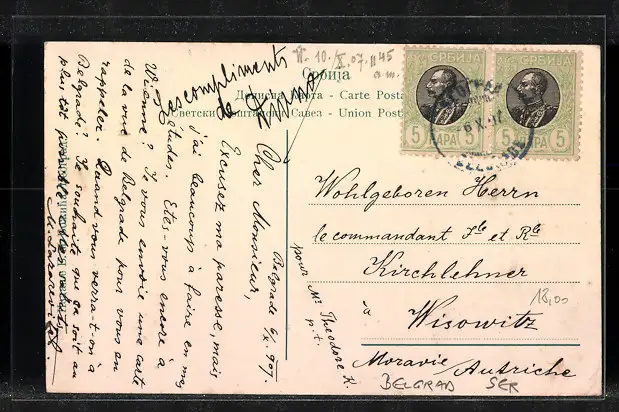 Србија
Дописна Карта - Carte Posta
Светски Поштански Савез - Union Post
СРБИЈА
СРБИЈА
5 ПАРА 5
5 ПАРА 5
Belgrade 6/X 907.
Cher Monsieur,
Excusez ma paresse, mais
j'ai beaucoup à faire en mes
études. Etes-vous encore à
Vienne? Je vous envoie une carte
de la vue de Belgrade pour vous en
rappeler. Quand vous verra-t-on à
Belgrade? Je souhaite que ça soit au
plus tôt
mes compliments
de
pour Mr Theodore K.
p. t.
Wohlgeboren Herrn
le commandant Ite et Rle
Kirchlehner
à
Wisowitz
Moravie Autriche
18,00
BELGRAD SER